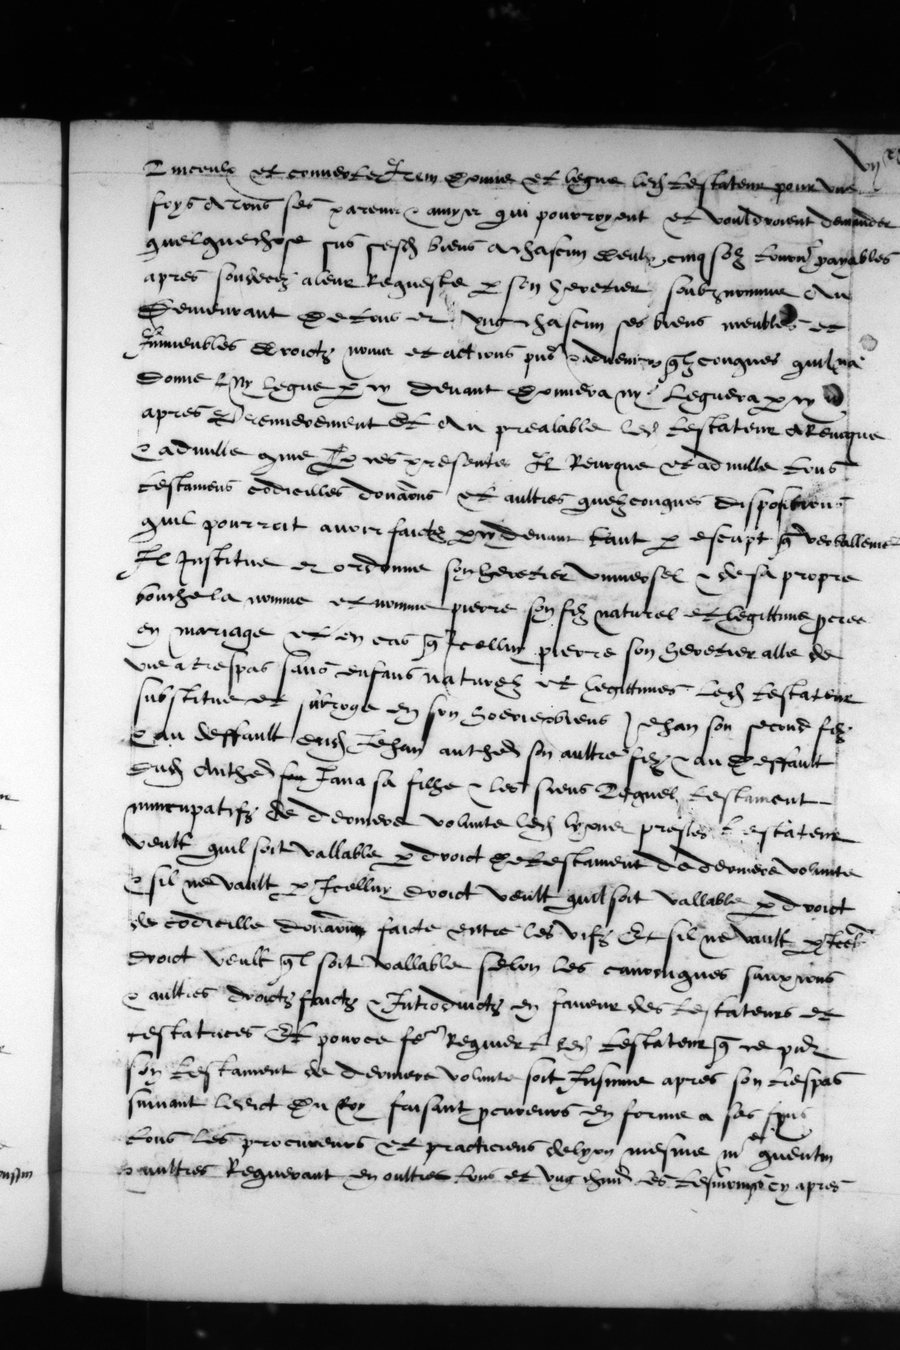 Linceulx et couverte Item donne et legue led testateur pour une
foys a tous ses parens et amys qui pourroyent et vouldroient demander
quelque chose sus sesd biens a chascun deulx cinq solz tourn payables
apres son deces a leur Requeste p son heretier soubznomme Au
Demeurant De tous et ung chascun ses biens meubles et
Immeubles droictz noms et actions pns et advenir qlzconques quil na
donne Ny legue p cy devant donnera ny leguera p cy
apres Et premierement Et Au prealable led testateur a Revocque
et adnulle come p ces presentes Il Revoque et adnulle tous
testamens codicilles donaons et aultres quelzconques dispositions
quil pourroit avoir faictz p cy devant tant p escript q verballement
Il Institue et ordonne son heretier universel et de sa propre
bouche la nomme et nomme pierre son filz naturel et legittime procree
en mariage et en cas q Icelluy pierre son heretier alle de
vie a trespas sans enfans naturelz et legittimes led testateur
substitue et subroge en son Jehan son second filz
et au deffault dud Jehan anthed son aultre filz et au deffault
dud Anthed Jana sa filhe et les siens Lequel testament
nuncupatifz de derniere volunte led testateur
veult quil soit vallable p droict de testament de derniere volunte
et sil ne vault p Icelluy droict veult quil soit vallable p droict
de codicille donaon faicte entre les vifz Et sil ne vault p Icel
droict veult ql soit vallable selon les canoniques sanxions
et aultres droictz faictz et Introduictz en faveur des testateurs et
testatrices Et pource fe Requiert led testateur q ce pnt
son testament de derniere volunte soit Insinue apres son trespas
suivant ledict du Roy faisant procureurs en forme a ses
tous les procureurs et practiciens de lyon mesme me quentin
et aultres Requerant en oultre tous et ung chun les tesmoings cy apres